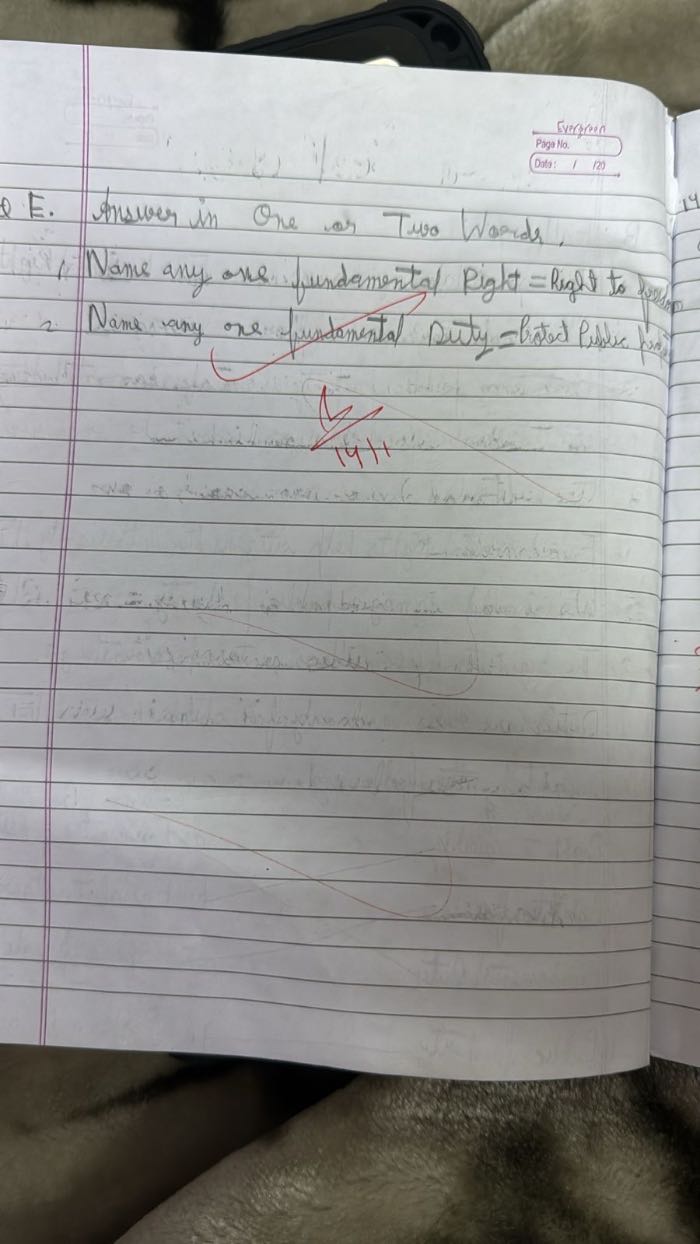 Evergreen
Page No.
Date: / /20
14
Q E. Answer in One or Two Words.
1. Name any one fundamental Right = Right to freedom
2. Name any one fundamental Duty = Protect Public
14/11